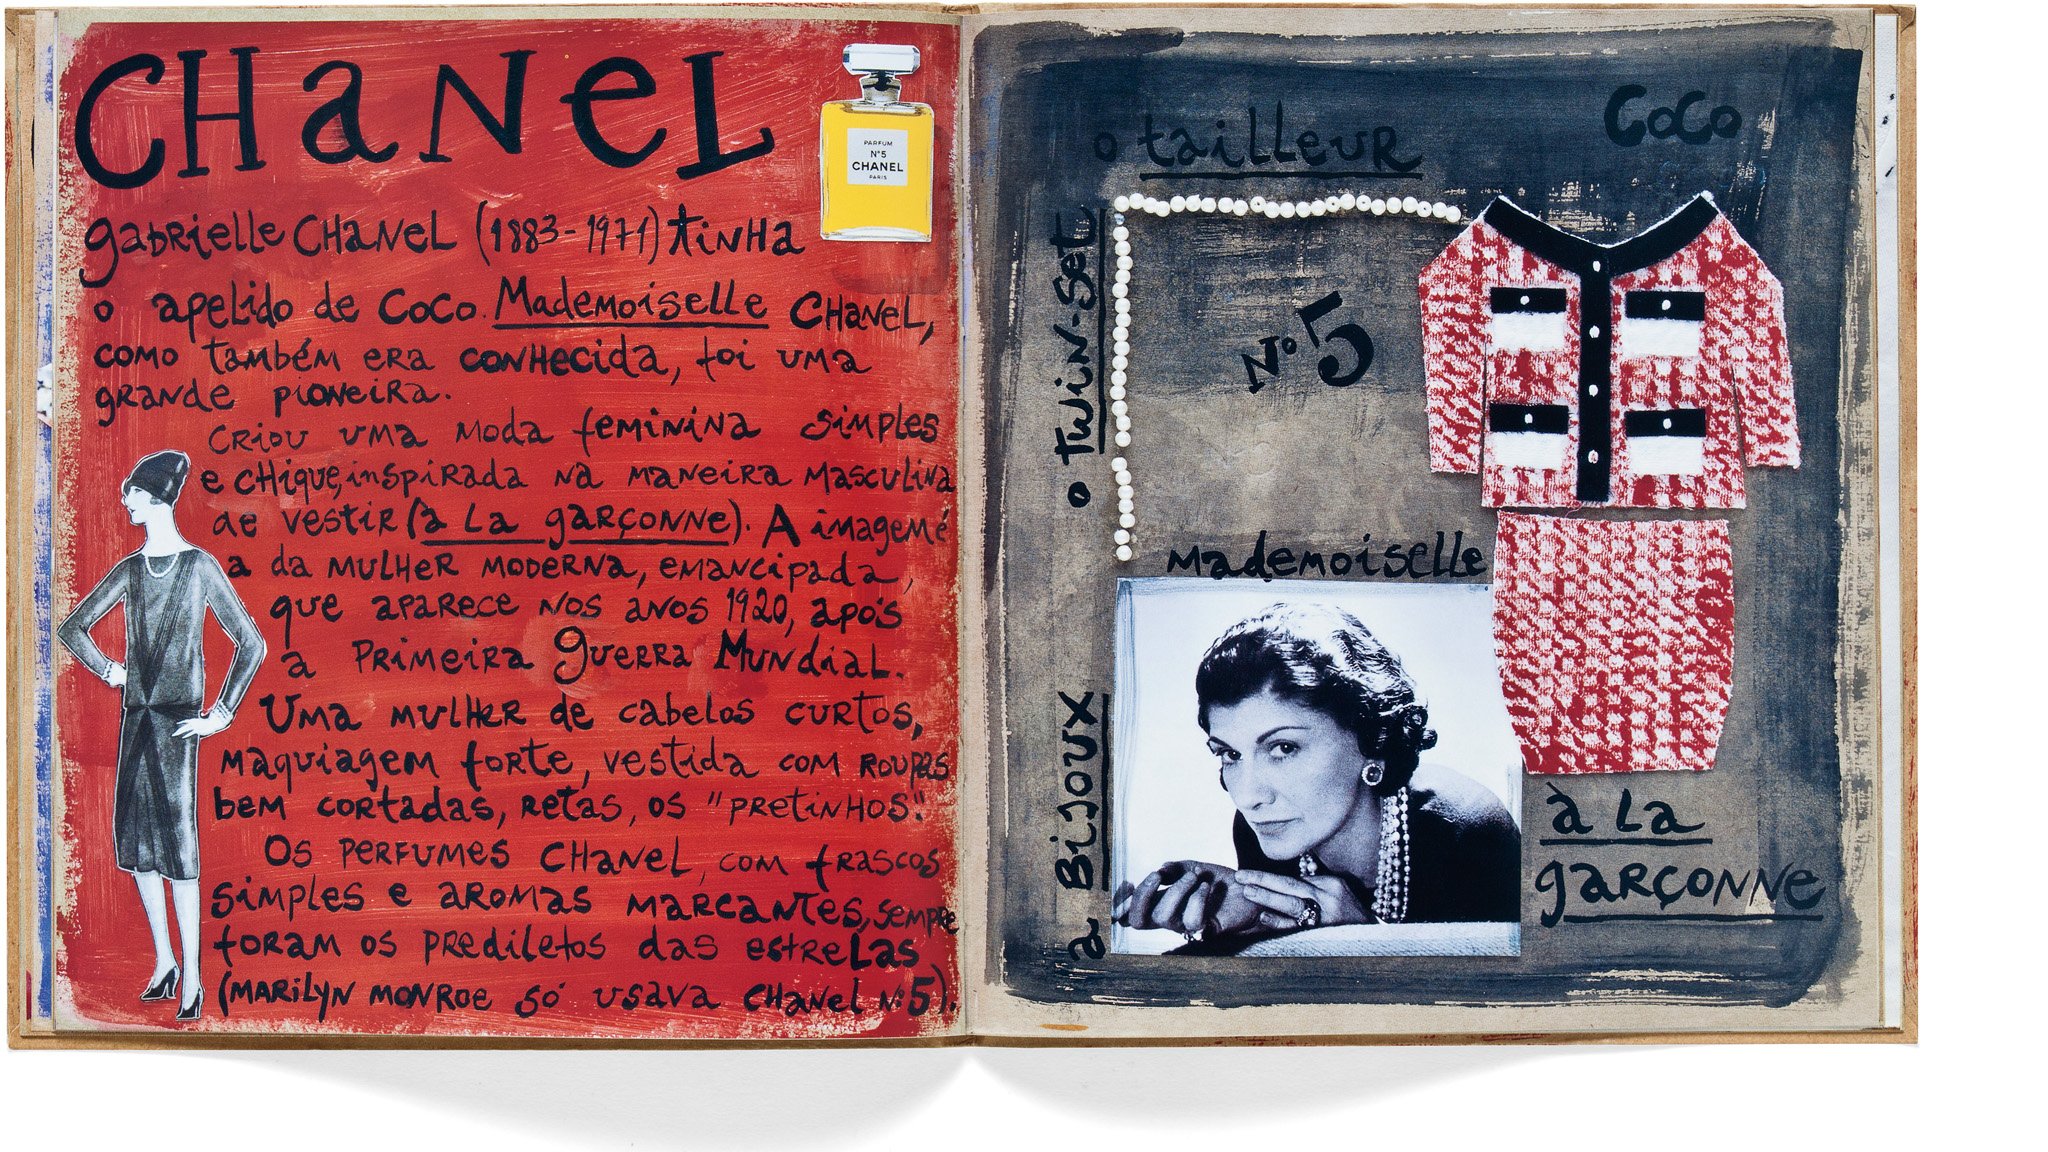 CHaNeL
PARFUM
Nº5
CHANEL
PARIS
gabrielle CHaNeL (1883-1971) tinha
o apelido de Coco. Mademoiselle CHaNeL,
como também era conhecida, foi uma
grande pioneira.
Criou uma moda feminina simples
e chique, inspirada na maneira masculina
de vestir (à la garçonne). A imagem é
a da mulher moderna, emancipada,
que aparece nos anos 1920, após
a Primeira Guerra Mundial.
Uma mulher de cabelos curtos,
maquiagem forte, vestida com roupas
bem cortadas, retas, os "pretinhos".
Os perfumes CHaNeL, com frascos
simples e aromas marcantes, sempre
foram os prediletos das estrelas
(Marilyn Monroe só usava CHaNel Nº5).
Coco
o tailleur
o Twin-Set
Nº5
Mademoiselle
a Bijoux
à la
garçonne